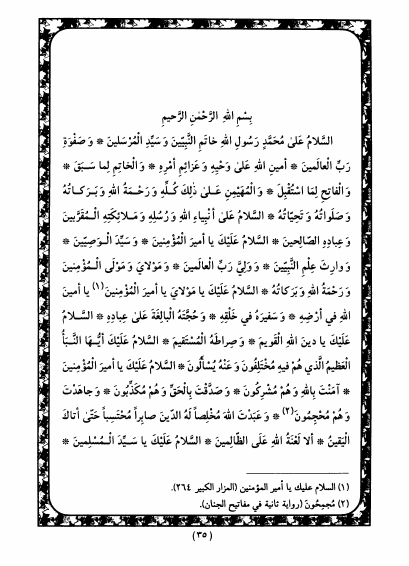 بِسْمِ اللهِ الرَّحْمٰنِ الرَّحيمِ
السَّلامُ عَلىٰ مُحَمَّدٍ رَسُولِ اللهِ خاتَمِ النَّبِيّينَ وَسَيِّدِ الْمُرْسَلينَ * وَصَفْوَةِ
رَبِّ الْعالَمينَ * أَمينِ اللهِ عَلىٰ وَحْيِهِ وَعَزائِمِ أَمْرِهِ * وَالْخاتِمِ لِما سَبَقَ *
وَالْفاتِحِ لِمَا اسْتُقْبِلَ * وَالْمُهَيْمِنِ عَلىٰ ذٰلِكَ كُلِّهِ وَرَحْمَةُ اللهِ وَبَرَكاتُهُ
وَصَلَواتُهُ وَتَحِيّاتُهُ * السَّلامُ عَلىٰ أَنْبِياءِ اللهِ وَرُسُلِهِ وَمَلائِكَتِهِ الْمُقَرَّبينَ
وَعِبادِهِ الصّالِحينَ * السَّلامُ عَلَيْكَ يا أَميرَ الْمُؤْمِنينَ * وَسَيِّدَ الْوَصِيّينَ *
وَوارِثَ عِلْمِ النَّبِيّينَ * وَوَلِيَّ رَبِّ الْعالَمينَ * وَمَوْلايَ وَمَوْلَى الْمُؤْمِنينَ
وَرَحْمَةُ اللهِ وَبَرَكاتُهُ * السَّلامُ عَلَيْكَ يا مَوْلايَ يا أَميرَ الْمُؤْمِنينَ(١) يا أَمينَ
اللهِ في أَرْضِهِ * وَسَفيرَهُ في خَلْقِهِ * وَحُجَّتَهُ الْبالِغَةَ عَلىٰ عِبادِهِ * السَّلامُ
عَلَيْكَ يا دينَ اللهِ الْقَويمَ * وَصِراطَهُ الْمُسْتَقيمَ * السَّلامُ عَلَيْكَ أَيُّهَا النَّبَأُ
الْعَظيمُ الَّذي هُمْ فيهِ مُخْتَلِفُونَ وَعَنْهُ يُسْأَلُونَ * السَّلامُ عَلَيْكَ يا أَميرَ الْمُؤْمِنينَ
* آمَنْتَ بِاللهِ وَهُمْ مُشْرِكُونَ * وَصَدَّقْتَ بِالْحَقِّ وَهُمْ مُكَذِّبُونَ * وَجاهَدْتَ
وَهُمْ مُحْجِمُونَ(٢) * وَعَبَدْتَ اللهَ مُخْلِصاً لَهُ الدّينَ صابِراً مُحْتَسِباً حَتّىٰ أَتاكَ
الْيَقينُ * أَلا لَعْنَةُ اللهِ عَلَى الظّالِمينَ * السَّلامُ عَلَيْكَ يا سَيِّدَ الْمُسْلِمينَ *
(١) السلام عليك يا أمير المؤمنين (المزار الكبير ٢٦٤).
(٢) مُجمِحُونَ (رواية ثانية في مفاتيح الجنان).
(٣٥)